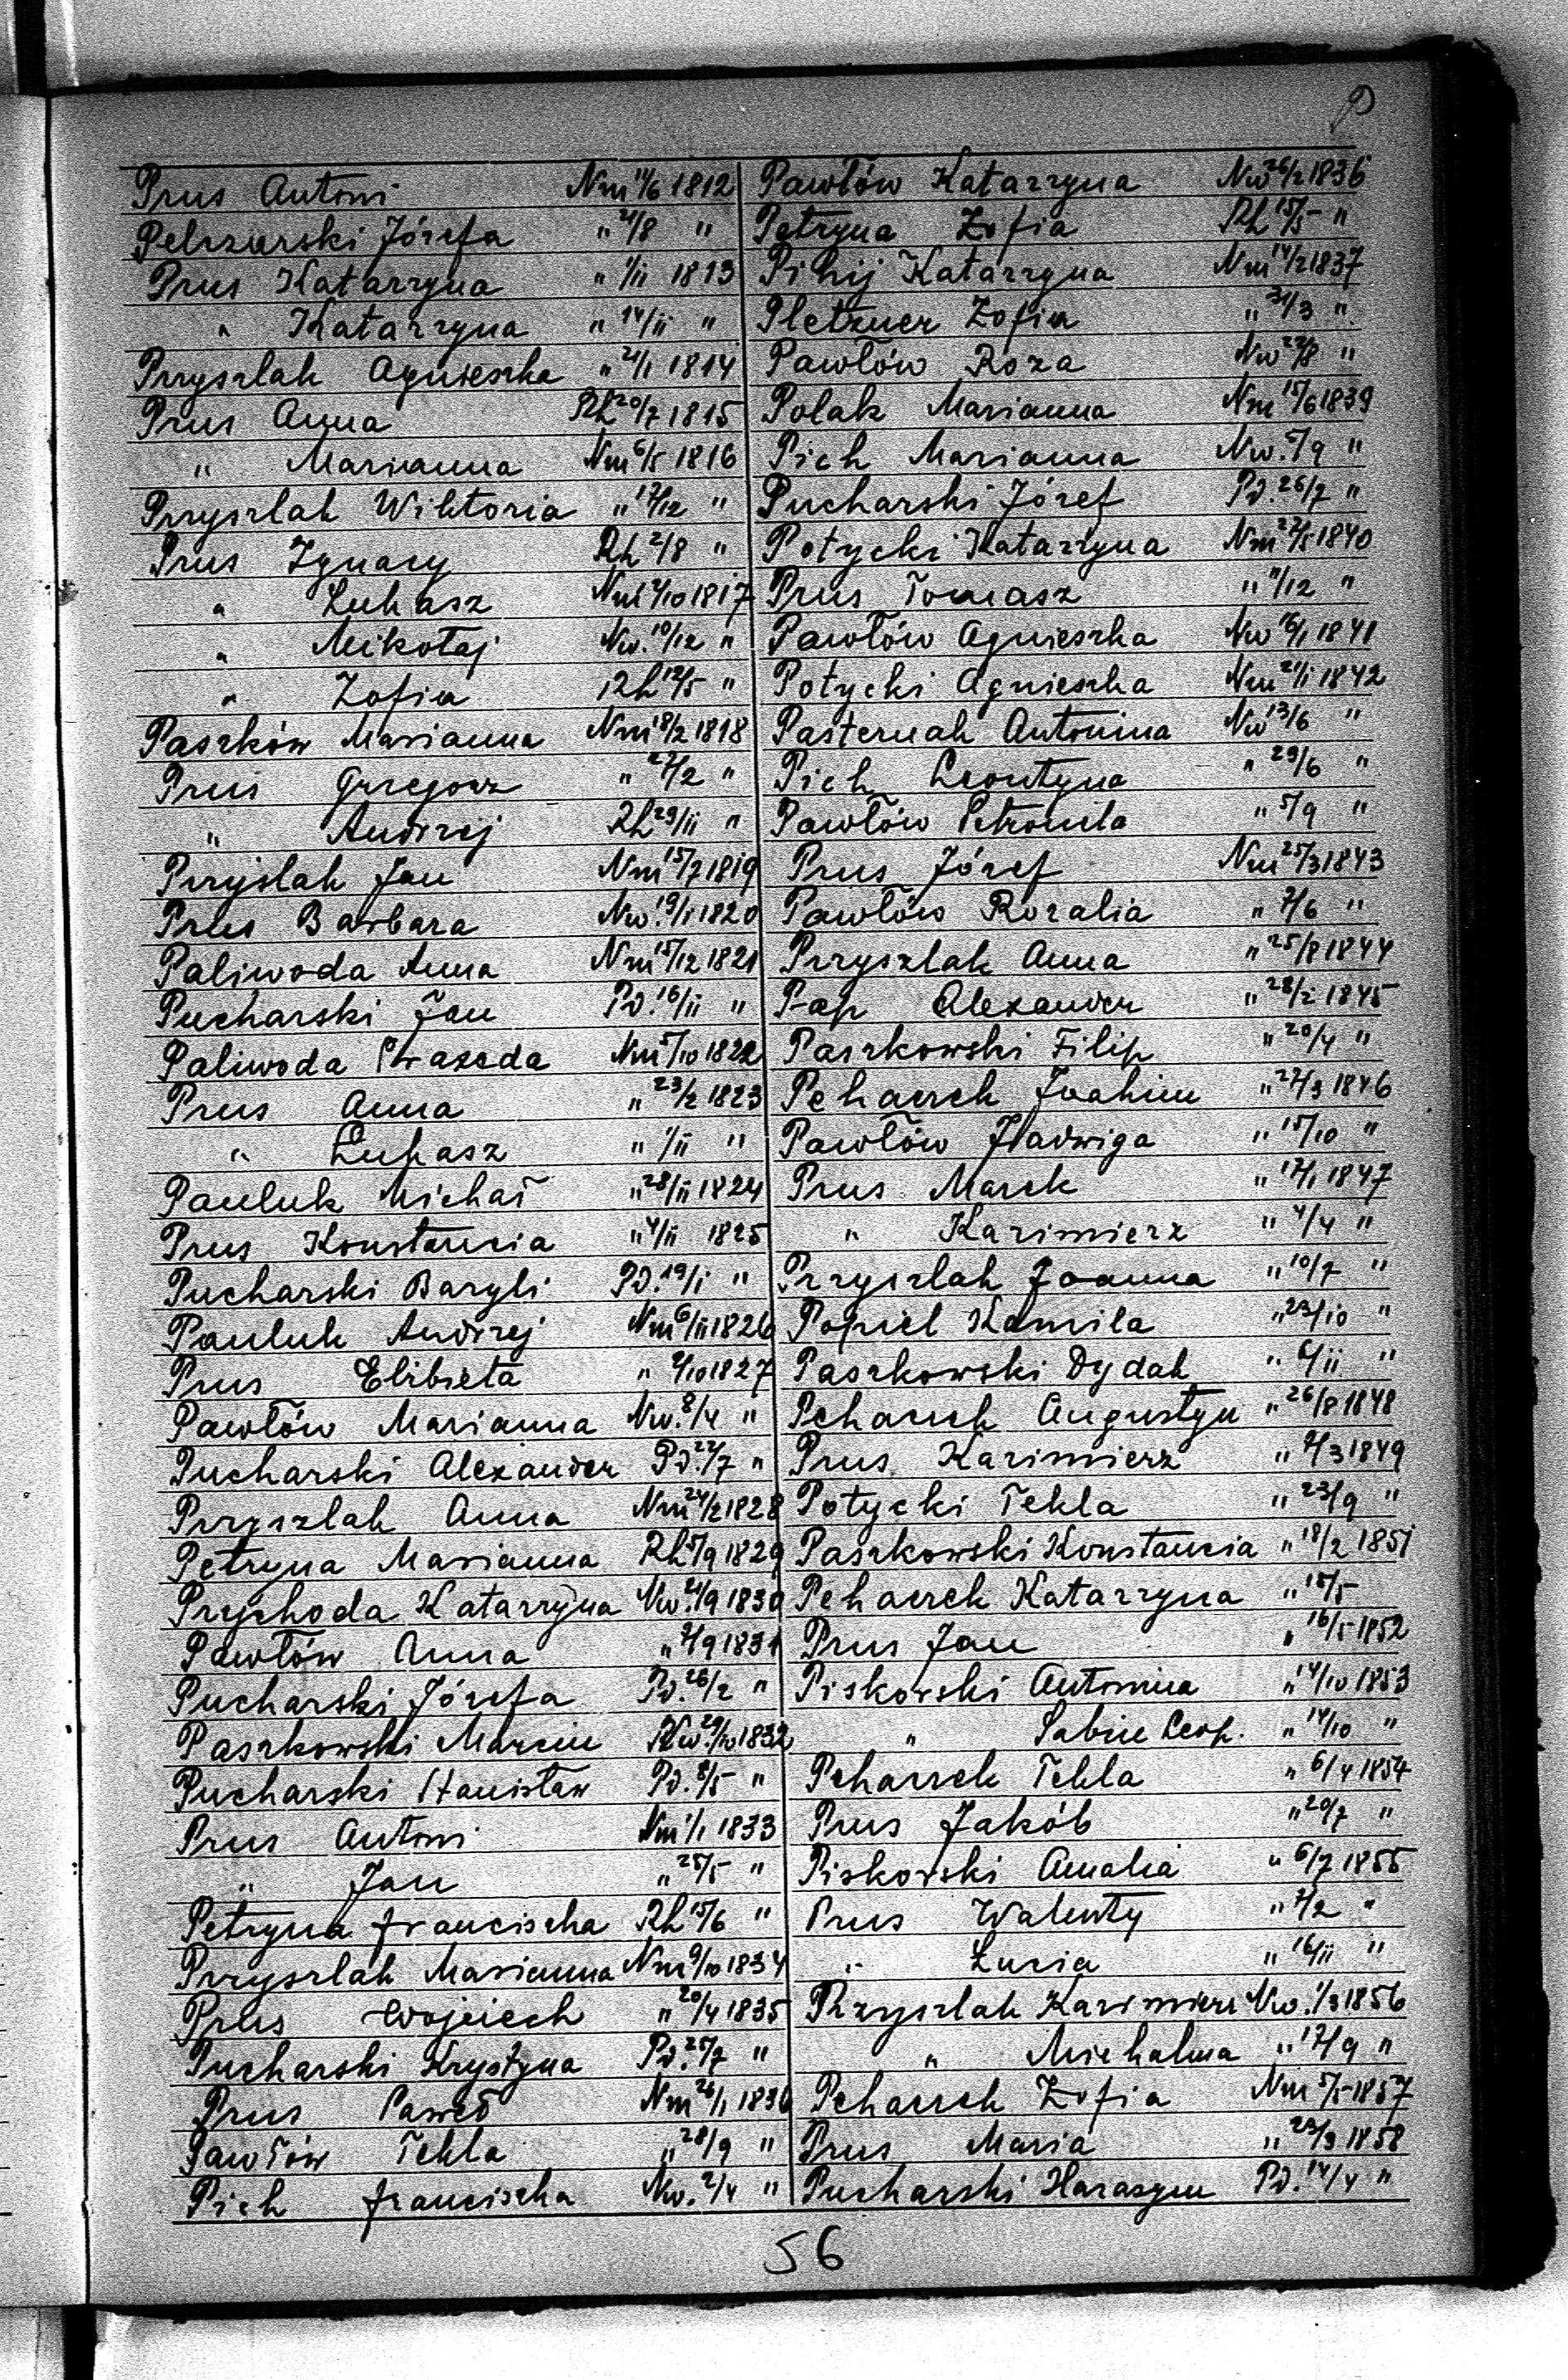 P
Prus Antoni Nm 14/6 1812
Pelrzurski Józefa " 21/8 "
Prus Katarzyna " 1/11 1813
" Katarzyna " 14/11 "
Przyszlak Agnieszka " 21/1 1814
Prus Anna Rh 20/7 1815
" Marianna Nm 6/5 1816
Przyszlak Wiktoria " 17/12 "
Prus Ignacy Rh 2/8 "
" Łukasz Nm 1817
" Mikołaj Nw. 10/12 "
" Zofia Rh 12/5 "
Paszków Marianna Nm 18/2 1818
Prus Grzegorz " 27/2 "
" Andrzej Rh 29/11 "
Przyslak Jan Nm 15/7 1819
Prus Barbara Nw. 19/1 1820
Paliwoda Anna Nm 15/12 1821
Pucharski Jan Pd. 16/11 "
Paliwoda Prakseda Nm 5/10 1822
Prus Anna " 23/2 1823
" Łukasz " 1/11 "
Pauluk Michał " 28/11 1824
Prus Konstancia " 4/11 1825
Pucharski Bazyli Pd. 19/1 "
Pauluk Andrzej Nm 6/11 1826
Prus Elżbieta " 1827
Pawłów Marianna Nw. 8/4 "
Pucharski Alexander Pd. 27/7 "
Przyszlak Anna Nm 24/2 1828
Petryna Marianna Rh 5/9 1829
Przychoda Katarzyna Nw. 21/9 1830
Pawłów Anna " 1831
Pucharski Józefa Pd. 26/2 "
Paszkowski Marcin Nw. 29/10 1832
Pucharski Stanisław Pd. 8/5 "
Prus Antoni Nm 1/1 1833
" Jan " 25/5 "
Petryna Franciszka Rh 15/6 "
Przyszlak Marianna Nm 9/10 1834
Prus Wojciech " 20/4 1835
Pucharski Krystyna Pd. 25/7 "
Prus Paweł Nm 26/1 1836
Pawłów Tekla " 28/9 "
Pich Franciszka Nw. 2/4 "
Pawłów Katarzyna Nw 26/2 1836
Petryna Zofia Rh 15/5 "
Pihij Katarzyna Nm 14/2 1837
Pletzner Zofia " 31/3 "
Pawłów Roza Nw 22/8 "
Polak Marianna Nm 15/6 1839
Pich Marianna Nw. 5/9 "
Pucharski Józef Pd. 26/7 "
Potycki Katarzyna Nm 27/5 1840
Prus Tomasz " 11/12 "
Pawłów Agnieszka Nw 16/1 1841
Potycki Agnieszka Nm 21/1 1842
Pasternak Antonina Nw 13/6 "
Pich Leontyna " 29/6 "
Pawłów Petronela " 5/9 "
Prus Józef Nm 25/3 1843
Pawłów Rozalia " 7/6 "
Przyszlak Anna " 25/8 1844
Pap Alexander " 28/1 1845
Paszkowski Filip " 20/4 "
Pehaczek Joahim " 27/3 1846
Pawłów Jadwiga " 15/10 "
Prus Marek " 17/1 1847
" Kazimierz " 4/4 "
Przyszlak Joanna " 10/7 "
Popiel Kamila " 23/10 "
Paszkowski Dydak " 6/11 "
Pehaczek Augustyn " 26/8 1848
Prus Kazimierz " 2/3 1849
Potycki Tekla " 23/9 "
Paszkowski Konstancia " 18/2 1851
Pehaczek Katarzyna " 15/5
Prus Jan " 16/5 1852
Piskorski Antonina " 14/10 1853
" Sabin Leop. " 14/10 "
Peharzek Tekla " 6/4 1854
Prus Jakób " 20/7 "
Piskorski Amalia " 6/7 1855
Prus Walenty " 7/2 "
" Łucia " 16/11 "
Przyszlak Kazimierz Nw. 1/3 1856
" Michalina " 17/9 "
Peharzek Zofia Nm 5/5 1857
Prus Maria " 23/3 1858
Pucharski Harasym Pd. 14/4 "
56